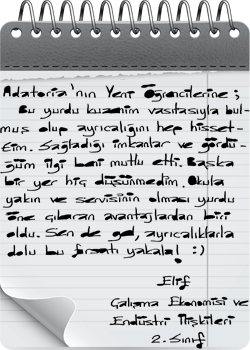 Adatoria'nın Yeni Öğrencilerine ;
Bu yurdu kuzenim vasıtasıyla bul-
muş olup ayrıcalığını hep hisset-
tim. Sağladığı imkanlar ve gördü-
ğüm ilgi beni mutlu etti. Başka
bir yer hiç düşünmedim. Okula
yakın ve servisinin olması yurdu
öne çıkaran avantajlardan biri
oldu. Sen de gel, ayrıcalıklarla
dolu bu fırsatı yakala! :)
Elif
Çalışma Ekonomisi ve
Endüstri İlişkileri
2. Sınıf